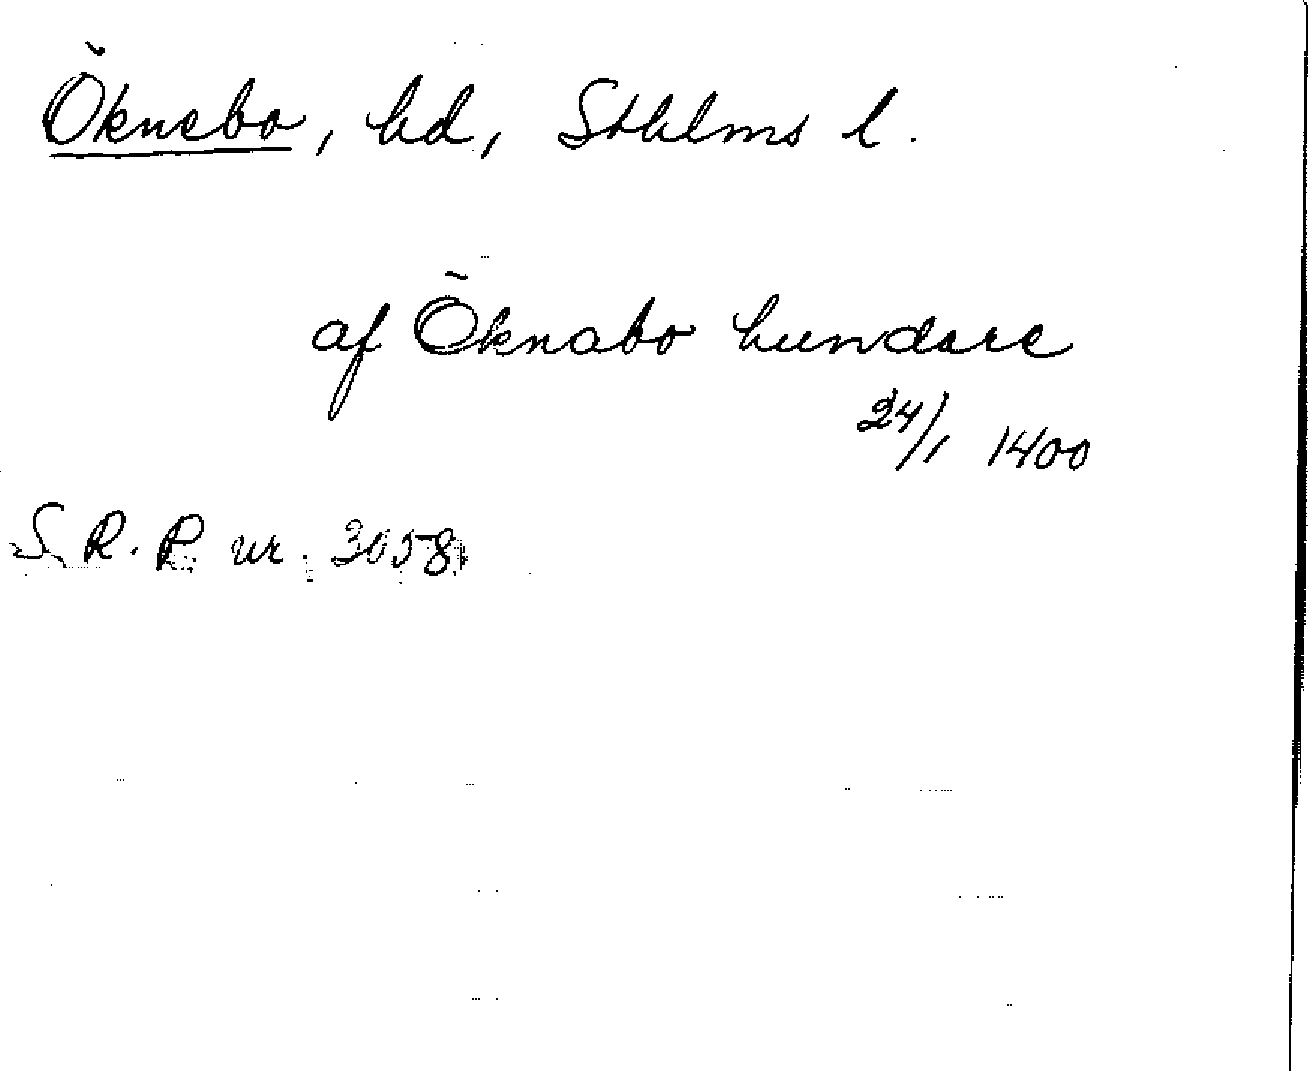 Öknebo, hd, Sthlms l.
af Öknabo hundare
24/1 1400
S. R. P nr. 3058